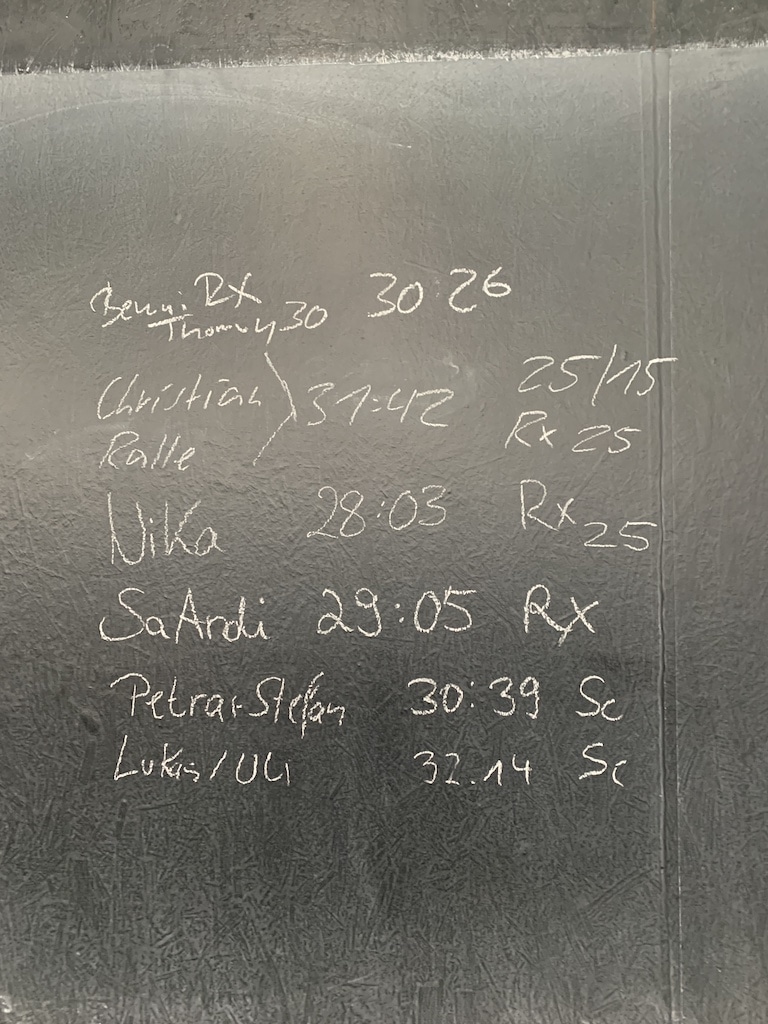 Benni RX
Thommy 30 30:26
Christian 31:42 25/15
Ralle Rx 25
Nika 28:03 Rx 25
SaArdi 29:05 Rx
Petra+Stefan 30:39 Sc
Lukas/Uli 32.14 Sc